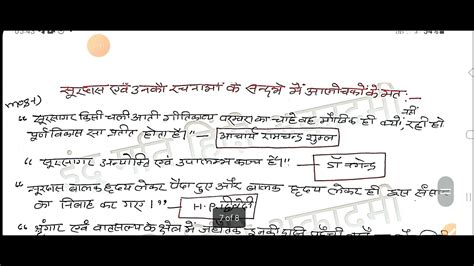 सूरदास एवं उनकी रचनाओं के सन्दर्भ में आलोचकों के मत :-
"सूरसागर किसी चली आती गीतिकाव्य परम्परा का चाहे वह मौखिक ही क्यों, रही हो
पूर्ण विकास सा प्रतीत होता है।" - आचार्य रामचन्द्र शुक्ल
"सूरसागर उपालम्भ काव्य है।" डॉ नगेन्द्र
"सूरदास बालक हृदय लेकर पैदा हुए और बालक हृदय लेकर ही इस संसार
का निर्वाह कर गए।" H.P. द्विवेदी
7 of 8
"श्रृंगार एवं वात्सल्य के क्षेत्र में जहाँ तक इनकी दृष्टि पहुँची